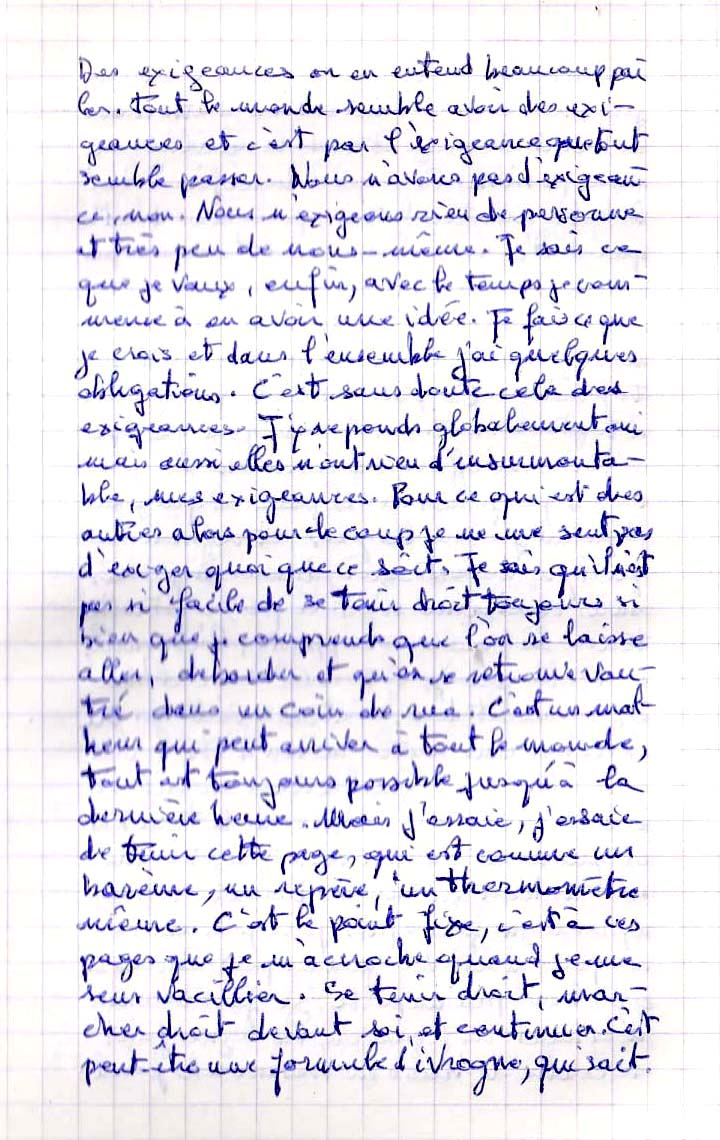 Des exigeances on en entend beaucoup par
ler. Tout le monde semble avoir des exi-
geances et c'est par l'exigeance que tout
semble passer. Nous n'avons pas d'exigean
ce, non. Nous n'exigeons rien de personne
et très peu de nous-même. Je sais ce
que je vaux, enfin, avec le temps je com-
mence à en avoir une idée. Je fais ce que
je crois et dans l'ensemble j'ai quelques
obligations. C'est sans doute cela des
exigeances. J'y reponds globalement oui
mais aussi elles n'ont rien d'insurmonta-
ble, mes exigeances. Pour ce qui est des
autres alors pour le coup je ne me sent pas
d'exiger quoi que ce soit. Je sais qu'il n'est
pas si facile de se tenir droit toujours si
bien que je comprends que l'on se laisse
aller, deborder et qu'on se retrouve vau-
tré dans un coin de rue. C'est un mal-
heur qui peut arriver à tout le monde,
tout est toujours possible jusqu'à la
dernière heure. Mais j'essaie, j'essaie
de tenir cette page, qui est comme un
barème, un repère, un thermomètre
même. C'est le point fixe, c'est à ces
pages que je m'accroche quand je me
sens vacillier. Se tenir droit, mar-
cher droit devant soi, et continuer. C'est
peut-être une formule d'ivrogne, qui sait.